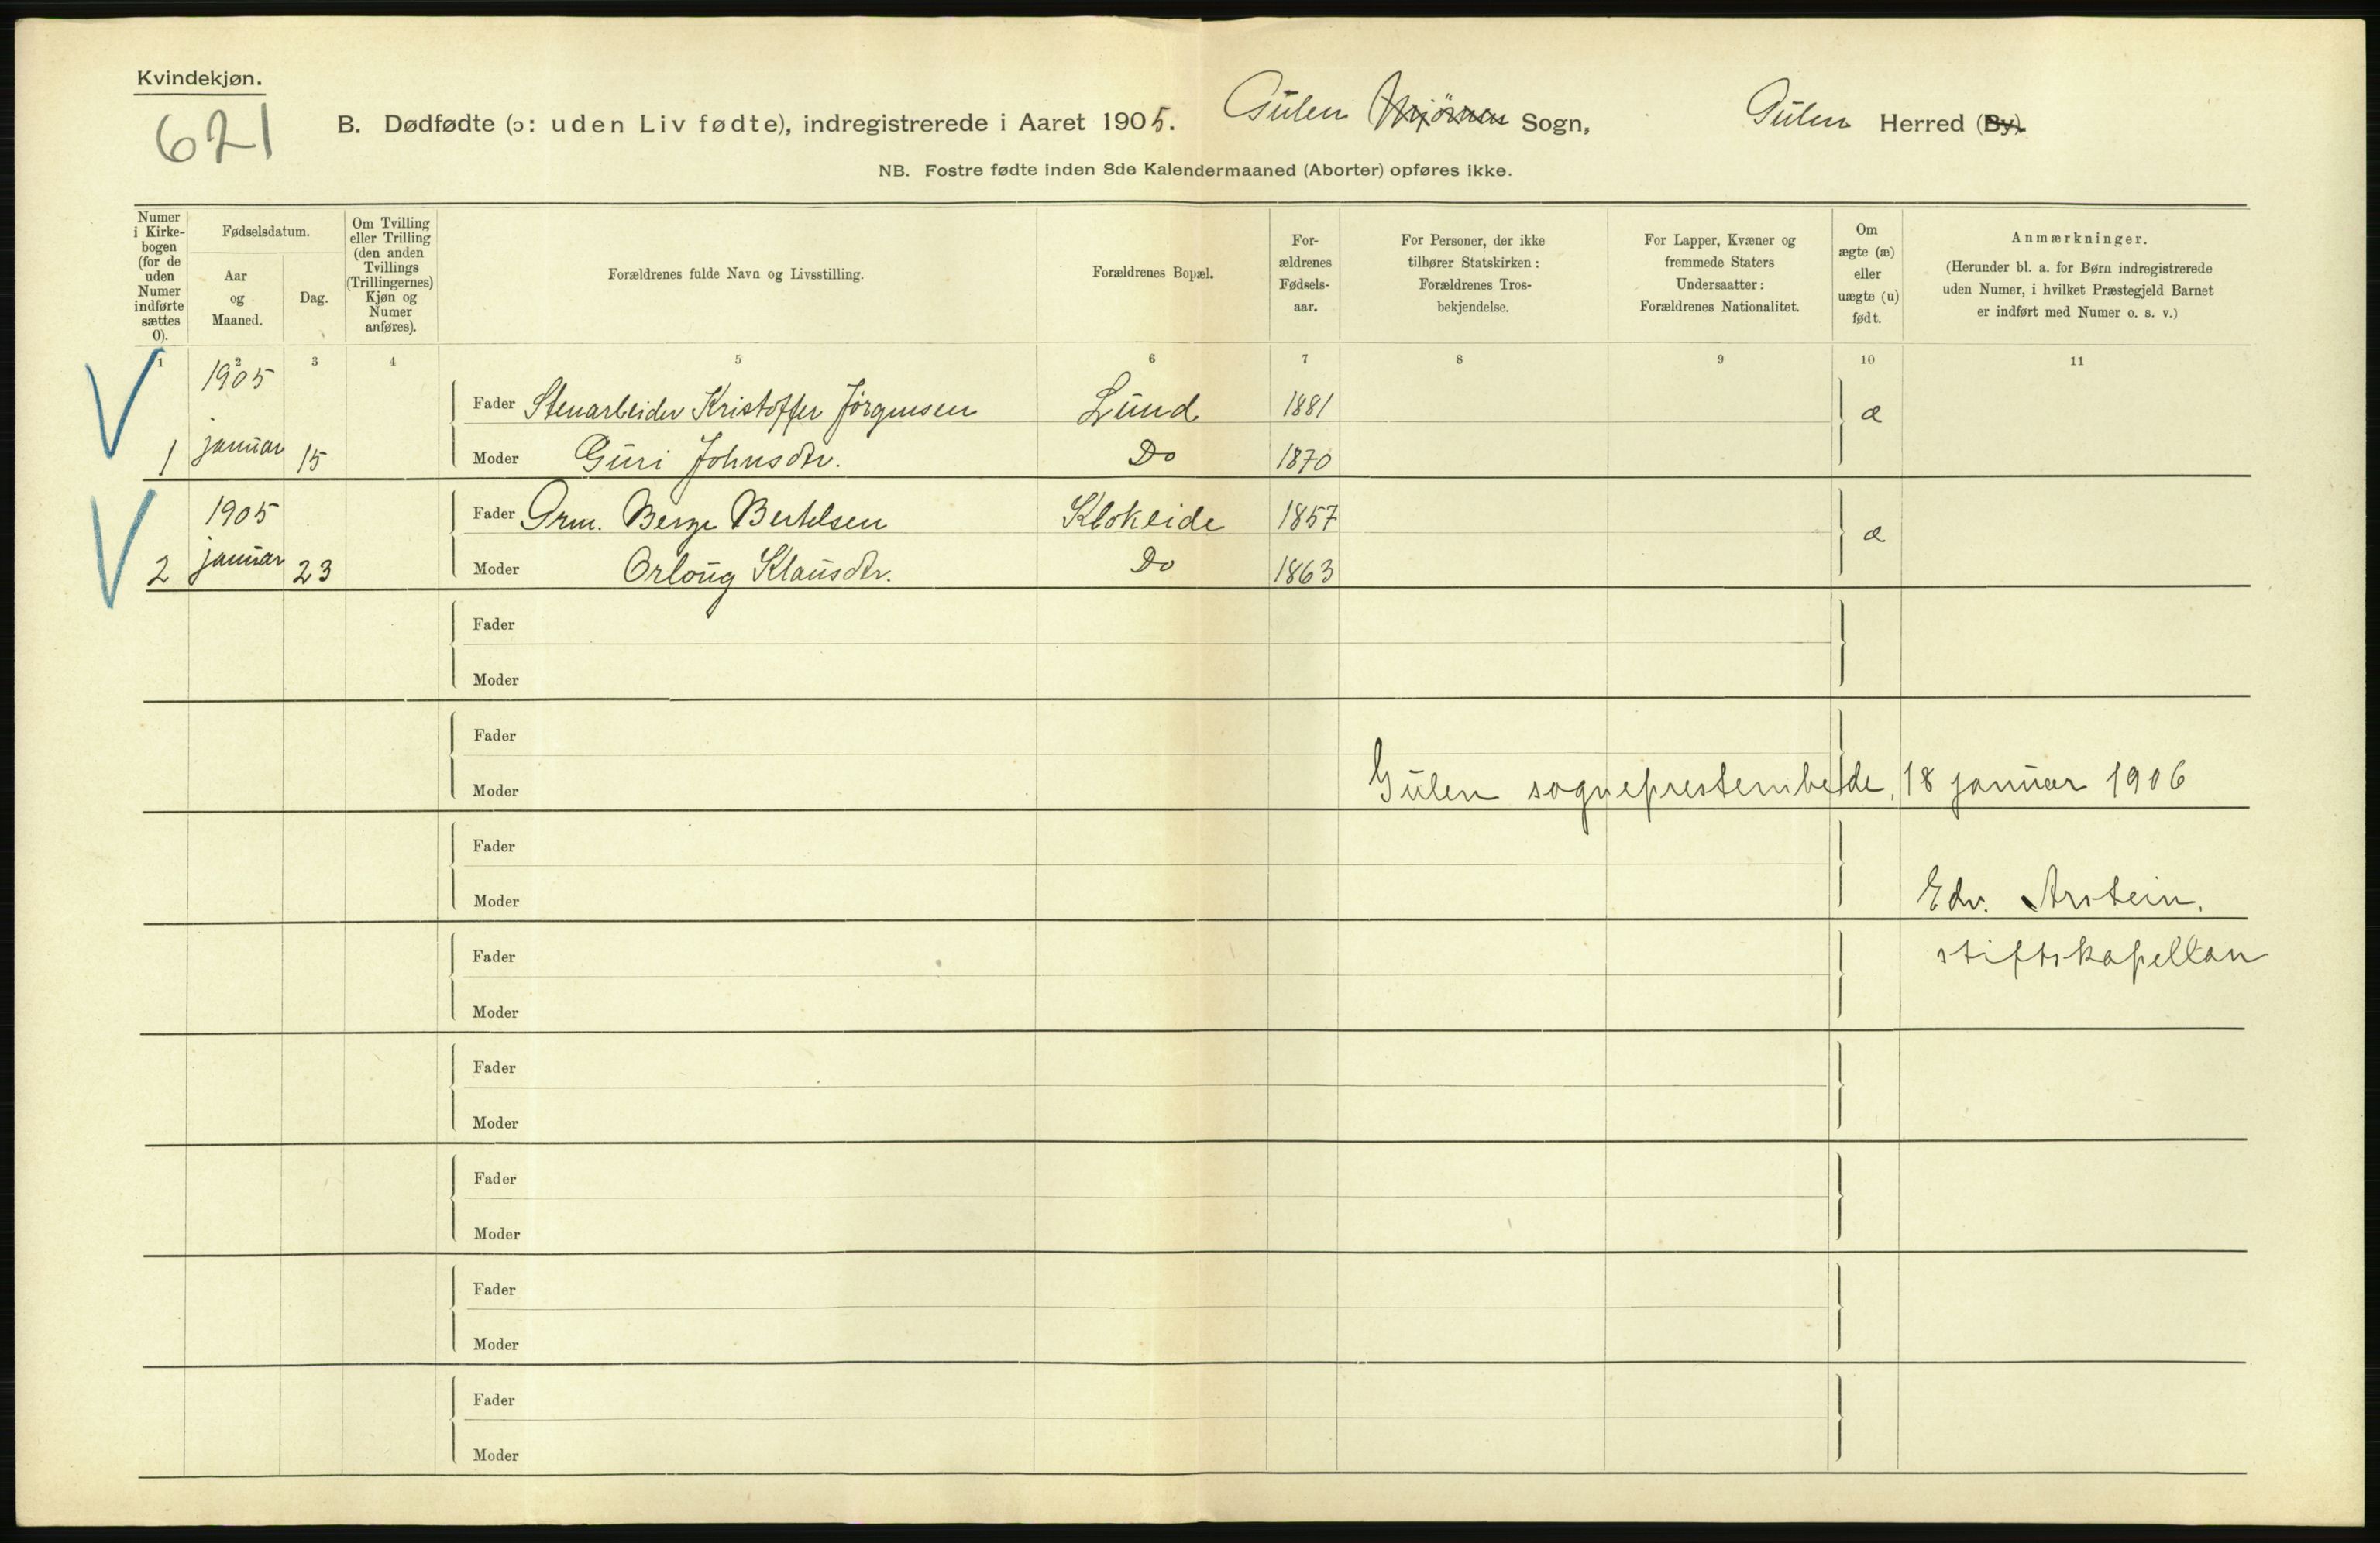 Kvindekjøn.
621
B. Dødfødte (ɔ: uden Liv fødte), indregistrerede i Aaret 1905. Gulen Sogn, Gulen Herred (By).
NB. Fostre fødte inden 8de Kalendermaaned (Aborter) opføres ikke.
Numer i Kirke-bogen (for de uden Numer indførte sættes 0).
Fødselsdatum.
Aar og Maaned.
Dag.
Om Tvilling eller Trilling (den anden Tvillings (Trillingernes) Kjøn og Numer anføres).
Forældrenes fulde Navn og Livsstilling.
Forældrenes Bopæl.
For-ældrenes Fødsels-aar.
For Personer, der ikke tilhører Statskirken: Forældrenes Tros-bekjendelse.
For Lapper, Kvæner og fremmede Staters Undersaatter: Forældrenes Nationalitet.
Om ægte (æ) eller uægte (u) født.
Anmærkninger.
(Herunder bl. a. for Børn indregistrerede uden Numer, i hvilket Præstegjeld Barnet er indført med Numer o. s. v.)
1 2 3 4 5 6 7 8 9 10 11
1905
Fader Stenarbeider Kristoffer Jörgensen Lund 1881 æ
1 januar 15 Moder Guri Johnsdtr. Do 1870
1905 Fader Grm. Berge Bertelsen Klokeide 1857 æ
2 januar 23 Moder Orloug Klausdtr. Do 1863
Fader
Moder
Fader
Moder Gulen sogneprestembede, 18 januar 1906
Fader
Moder Edv. Arstein.
Fader stiftskapellan
Moder
Fader
Moder
Fader
Moder
Fader
Moder
Fader
Moder